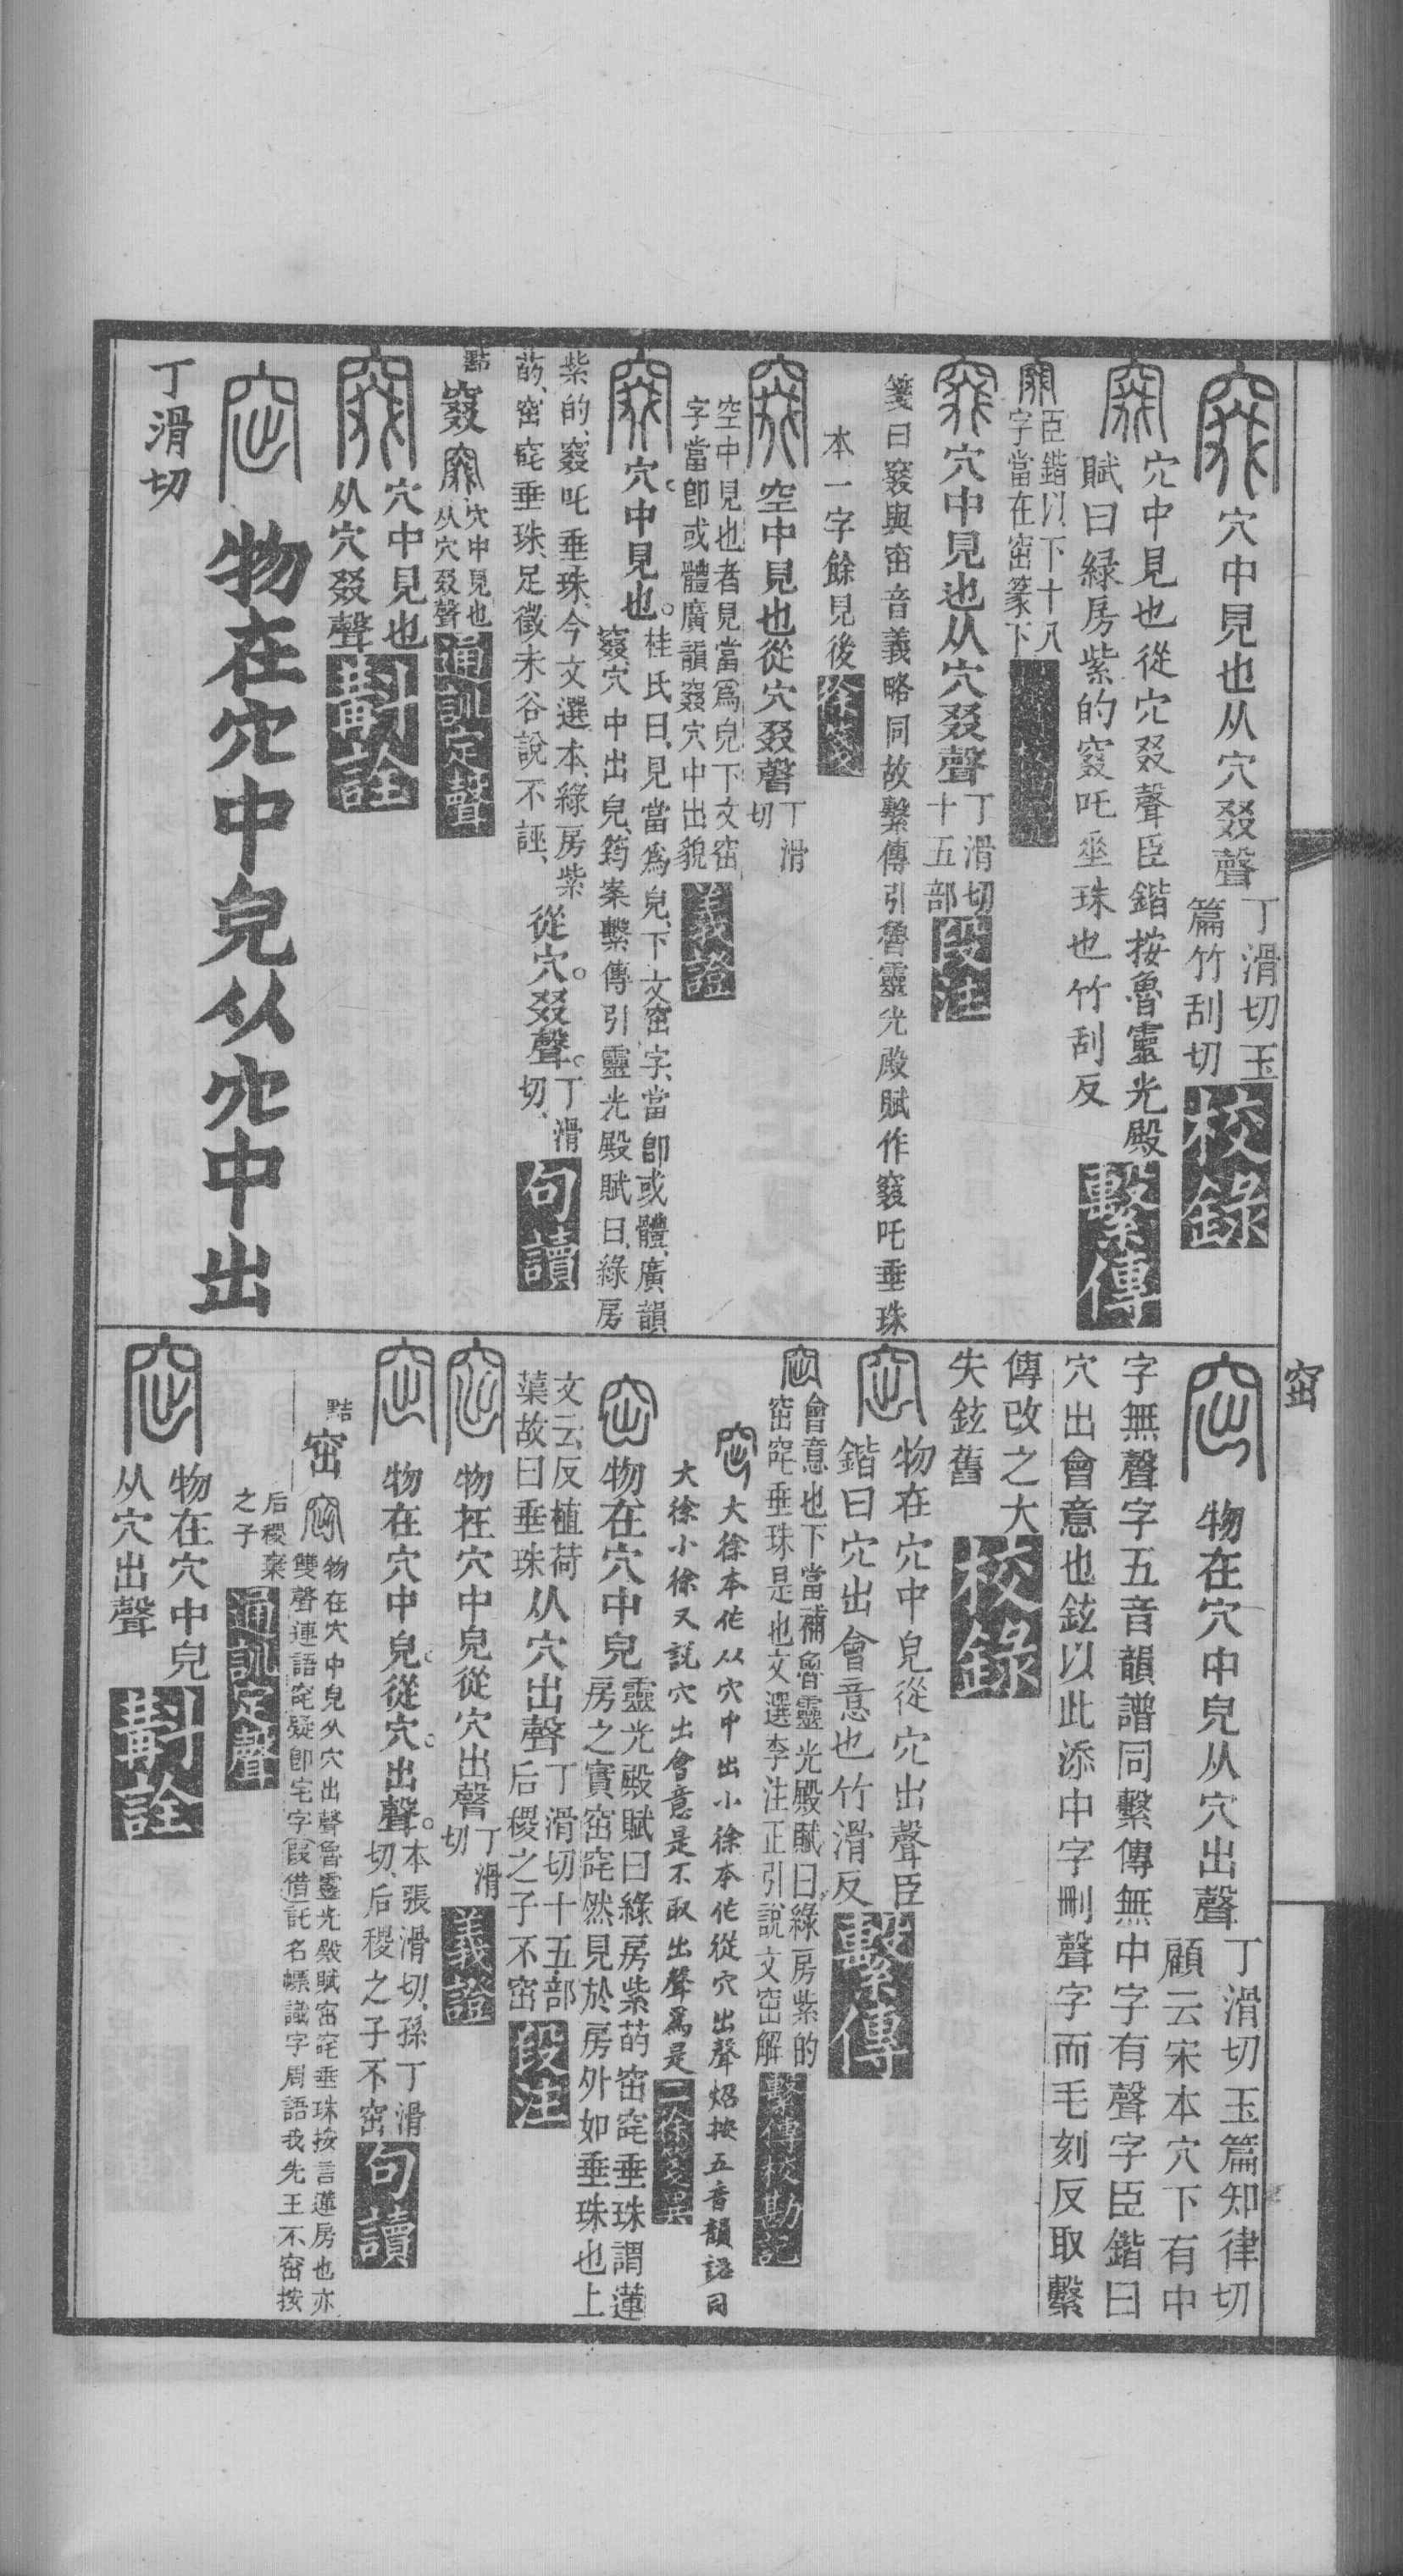 穴中見也从穴叕聲
丁滑切玉
篇竹刮切
校錄
穴中見也從穴叕聲臣鍇按魯靈光殿
賦曰緑房紫的窡吒垂珠也竹刮反
繫傳
臣鍇以下十八
字當在窋篆下
穴中見也从穴叕聲
丁滑切
十五部
段注
箋曰窡與窋音義略同故繫傳引魯靈光殿賦作窡吒垂珠
本一字餘見後
徐箋
空中見也從穴叕聲
丁滑
切
空中見也者見當爲皃下文窋
字當卽或體廣韻窡穴中出貌
義證
穴中見也。
桂氏曰、見當爲皃、下文窋字、當卽或體、廣韻
窡、穴中出皃、筠案繫傳引靈光殿賦曰、緑房
紫的、窡吒垂珠、今文選本、綠房紫
菂、窋窀垂珠、足徵未谷說不誣、
從穴。叕聲。
丁滑
切、
句讀
黠
窡
穴中見也
从穴叕聲
通訓定聲
穴中見也
从穴叕聲
斠詮
物在穴中皃从穴中出
丁滑切
窋
物在穴中皃从穴出聲
丁滑切玉篇知律切
顧云宋本穴下有中
字無聲字五音韻譜同繫傳無中字有聲字臣鍇曰
穴出會意也鉉以此添中字刪聲字而毛刻反取繫
傳改之大
失鉉舊
校錄
物在穴中皃從穴出聲臣
鍇曰穴出會意也竹滑反
繫傳
會意也下當補魯靈光殿賦曰綠房紫的
窋窀垂珠是也文選李注正引說文窋解
繫傳校勘記
大徐本作从穴中出小徐本作從穴出聲炤按五音韻譜同
大徐小徐又說穴出會意是不取出聲爲是
二徐箋異
物在穴中皃
靈光殿賦曰綠房紫菂窋窀垂珠謂蓮
房之實窋窀然見於房外如垂珠也上
文云反植荷
蕖故曰垂珠
从穴出聲
丁滑切十五部
后稷之子不窋
段注
物在穴中皃從穴出聲
丁滑
切
義證
物在穴中皃。從穴。出聲。
本張滑切、孫丁滑
切、后稷之子不窋
句讀
黠
窋
物在穴中皃从穴出聲魯靈光殿賦窋窀垂珠按言蓮房也亦
雙聲連語窀疑卽宅字假借託名幖識字周語我先王不窋按
后稷棄
之子
通訓定聲
物在穴中皃
从穴出聲
斠詮